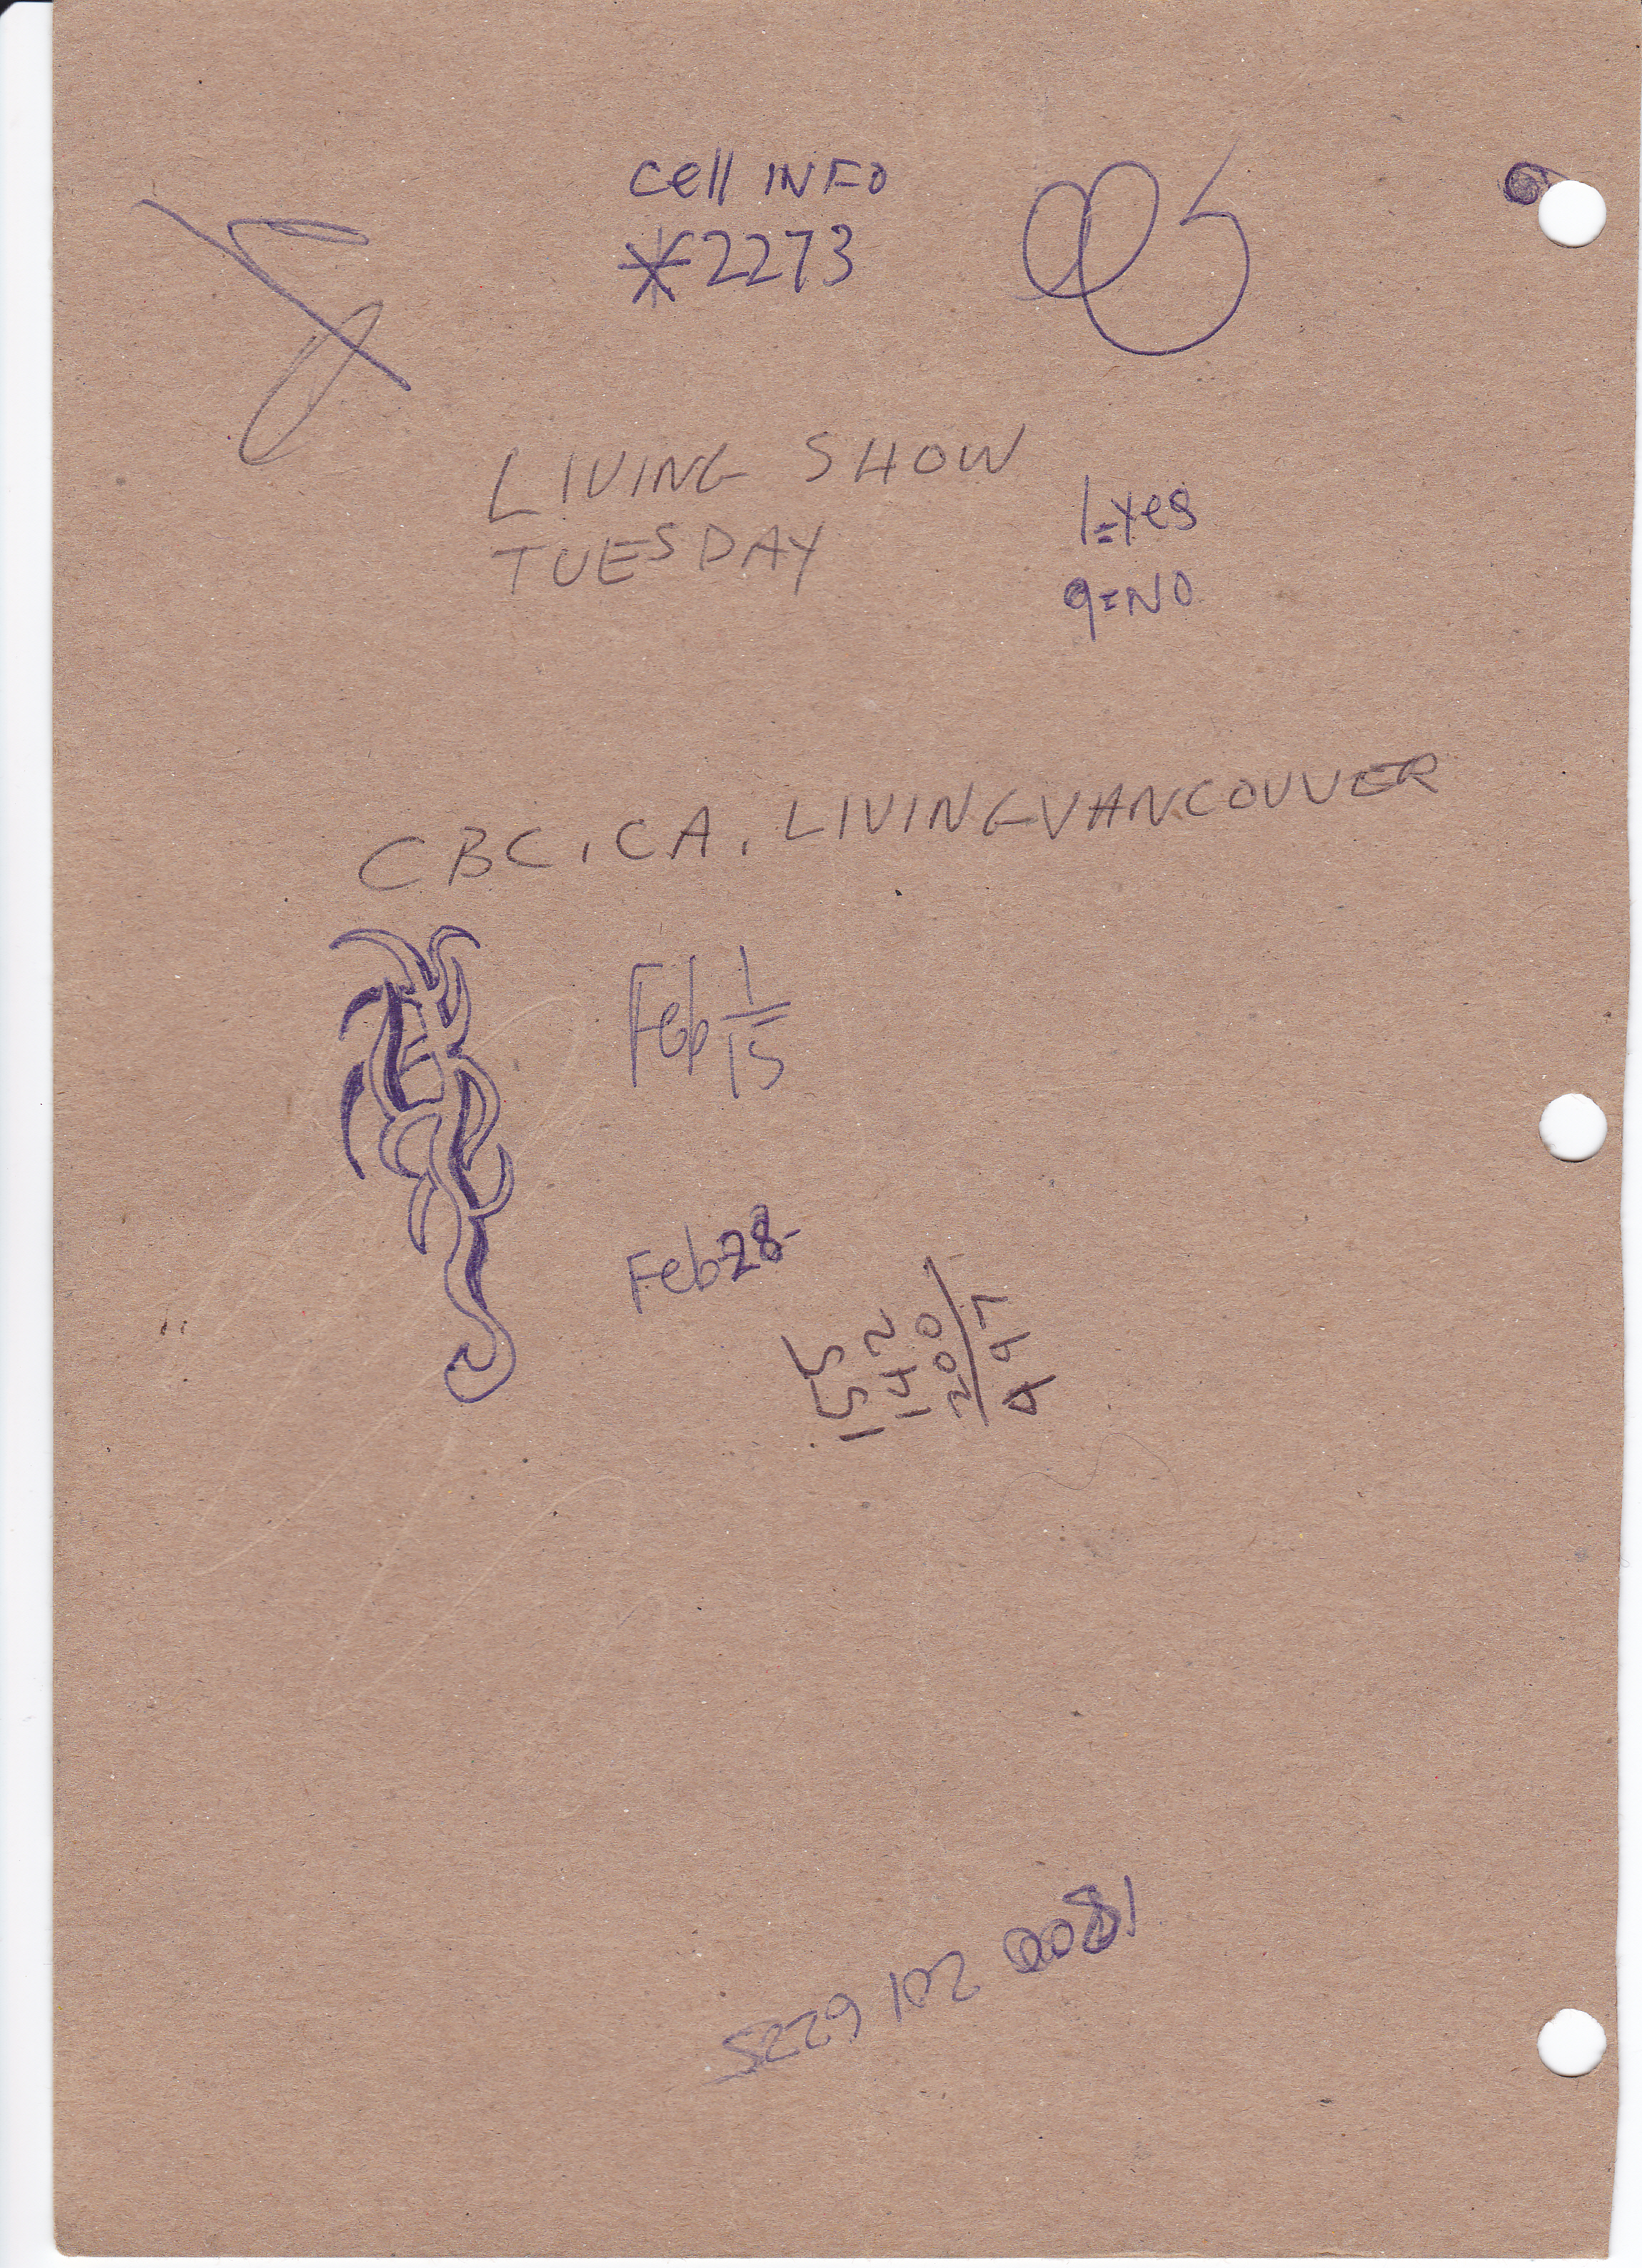 Cell INFO
*2273
LIVING SHOW
TUESDAY
1=Yes
9=NO
CBC.CA.LIVINGVANCOUVER
Feb 1
15
Feb 28-
155
142
200
497
1800 201 6225